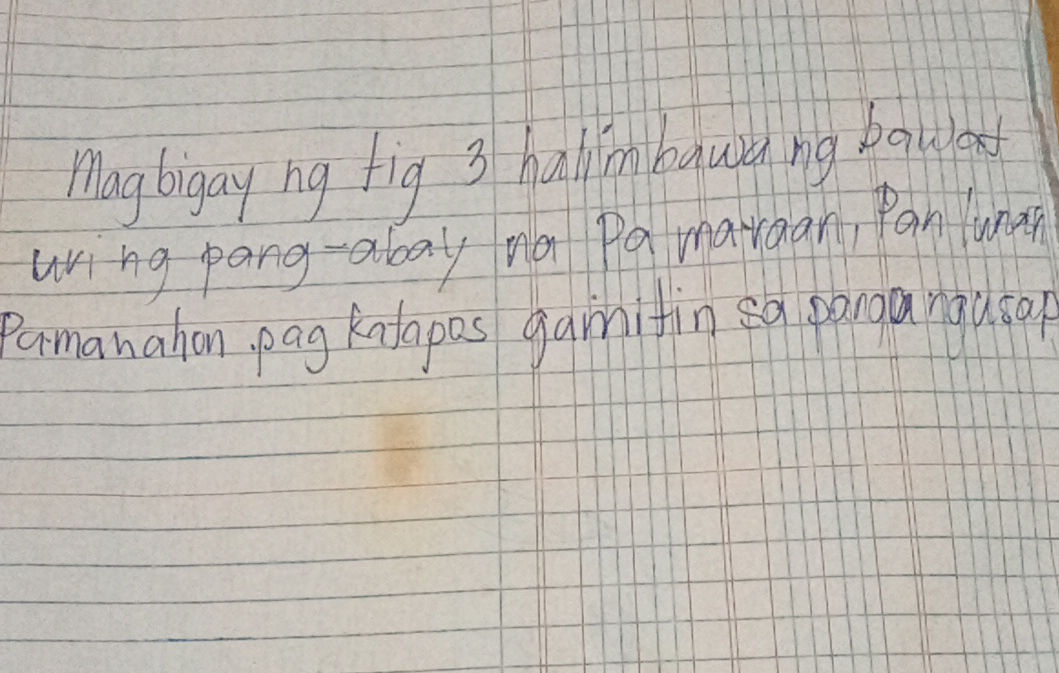 Magbigay ng tig 3 halimbawa ng bawat
uri ng pang-abay na Pamaraan, Panlunan
Pamanahon. pag katapos gamitin sa pangungusap